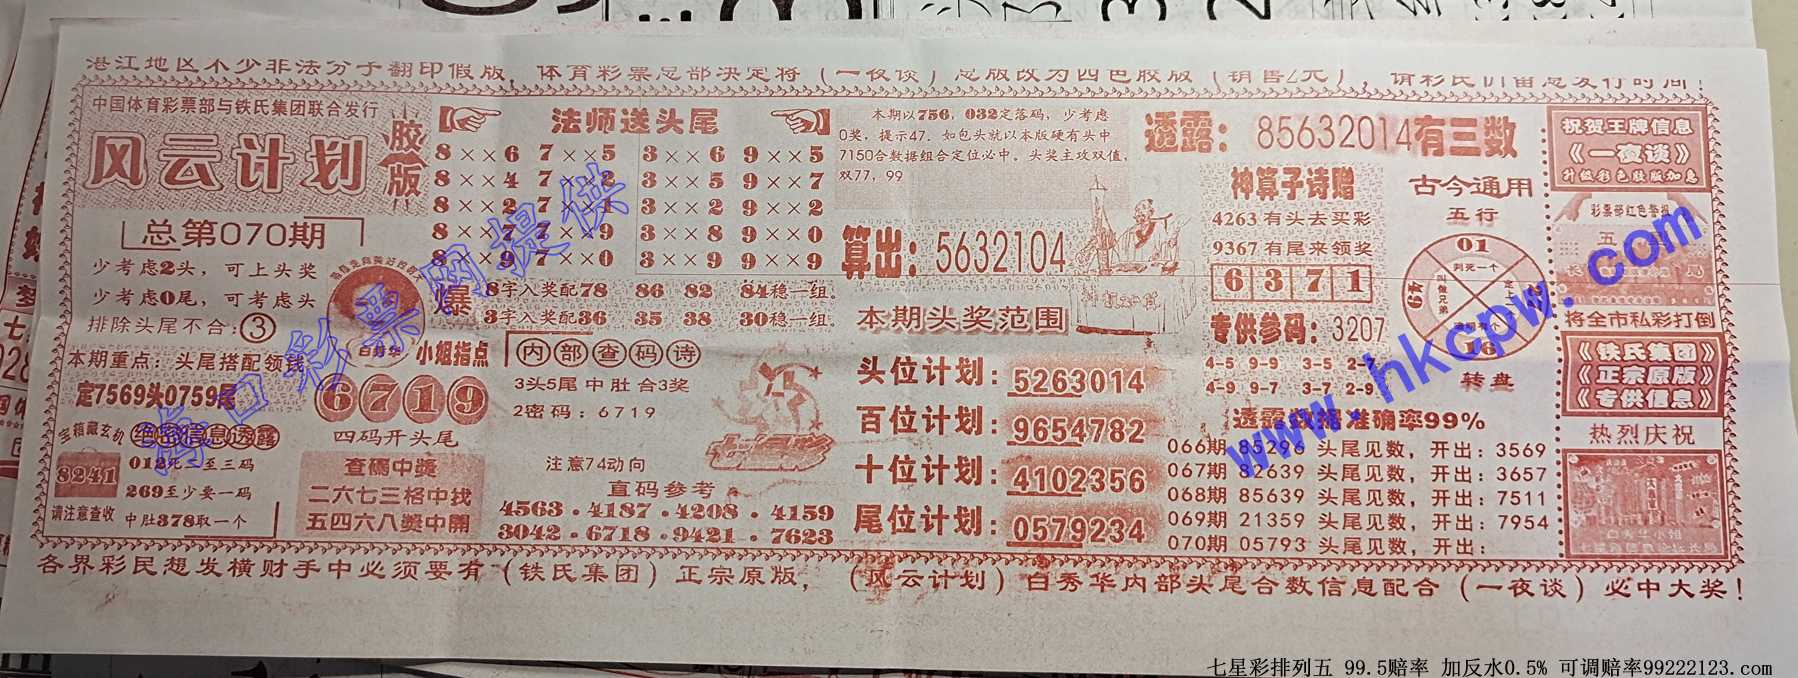 湛江地区不少非法分子翻印假版，体育彩票总部决定将（一夜谈）总版改为四色胶版（销售2元），请彩民们留意发行时间！
中国体育彩票部与铁氏集团联合发行
风云计划
胶版
总第070期
少考虑2头，可上头奖
少考虑0尾，可考虑头
排除头尾不合：③
本期重点：头尾搭配领钱
定7569头0759尾
宝箱藏玄机
绝密信息透露
8241
012死一至三码
269至少要一码
请注意查收
中肚378取一个
白秀华
小姐指点
6719
四码开头尾
查碼中獎
二六七三格中找
五四六八獎中開
法师送头尾
8××6 7××5 3××6 9××5
8××4 7××2 3××5 9××7
8××2 7××1 3××2 9××2
8××7 7××9 3××8 9××0
8××9 7××0 3××9 9××9
爆
8字入奖配78 86 82 84稳一组。
3字入奖配36 35 38 30稳一组。
内部查码诗
3头5尾中肚合3奖
2密码：6719
注意74动向
直码参考
4563．4187．4208．4159
3042．6718．9421．7623
七星彩
本期以756，032定落码，少考虑
0奖，提示47．如包头就以本版硬有头中
7150合数据组合定位必中。头奖主攻双值，
双77，99
算出：5632104
本期头奖范围
头位计划：5263014
百位计划：9654782
十位计划：4102356
尾位计划：0579234
透露：85632014有三数
神算子诗赠
4263有头去买彩
9367有尾来领奖
6371
专供参码：3207
4-5 9-9 3-5 2-
4-9 9-7 3-7 2-9
古今通用
五行
01
49
16
转盘
透露数据准确率99%
066期 85296 头尾见数，开出：3569
067期 82639 头尾见数，开出：3657
068期 85639 头尾见数，开出：7511
069期 21359 头尾见数，开出：7954
070期 05793 头尾见数，开出：
祝贺王牌信息
《一夜谈》
升级彩色胶版加急
彩票部红色警报
将全市私彩打倒
《铁氏集团》
《正宗原版》
《专供信息》
热烈庆祝
白秀华小姐
各界彩民想发横财手中必须要有（铁氏集团）正宗原版，（风云计划）白秀华内部头尾合数信息配合（一夜谈）必中大奖！
海口彩票网提供
www.hkcpw.com
七星彩排列五 99.5赔率 加反水0.5% 可调赔率99222123.com